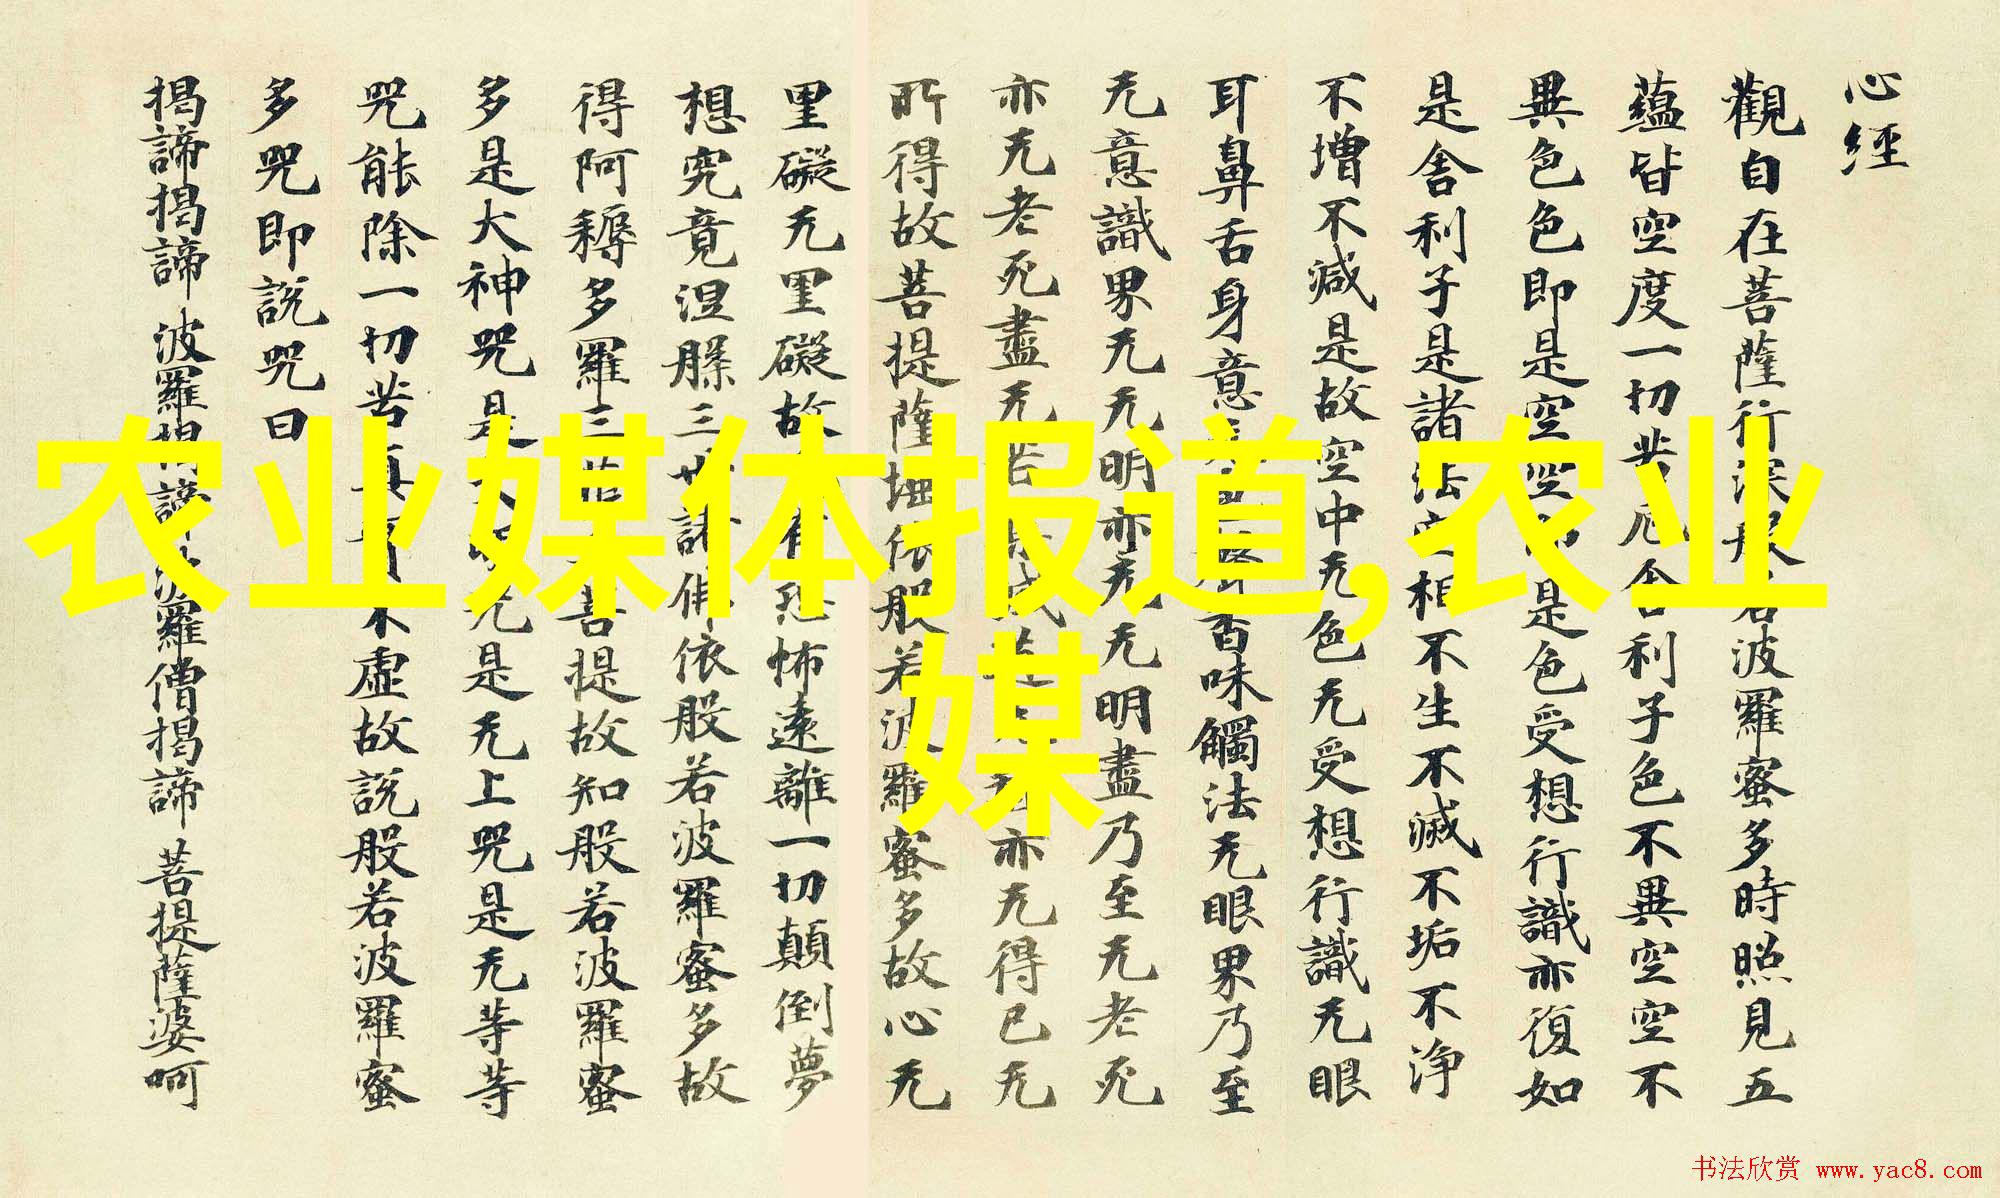 心經
觀自在菩薩行深般若波羅蜜多時照見五
蘊皆空度一切苦厄舍利子色不異空空不
異色色即是空空即是色受想行識亦復如
是舍利子是諸法空相不生不滅不垢不淨
不增不減是故空中无色无受想行識无眼
耳鼻舌身意香味觸法无眼界乃至
无意識界无无明亦无无明盡乃至无老死
亦无老死盡无苦滅道亦无得已无
所得故菩提薩埵依般若波羅蜜多故心无
罣礙无罣礙故有恐怖遠離一切顛倒夢
想究竟涅槃三世諸佛依般若波羅蜜多故
得阿耨多羅三菩提故知般若波羅蜜
多是大神咒是大明咒是无上咒是无等等
咒能除一切苦真實不虛故說般若波羅蜜
多咒即說咒曰
揭諦揭諦 波羅揭諦 波羅僧揭諦 菩提薩婆呵
农业媒体报道,农业
媒
书法欣赏 www.yac8.com